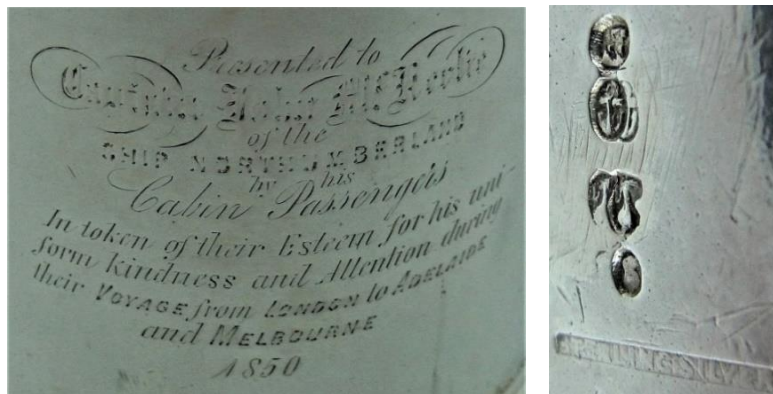 Presented to
Captain John McKerlie
of the
SHIP NORTHUMBERLAND
by his
Cabin Passengers
In token of their Esteem for his uni-
form kindness and Attention during
their VOYAGE from LONDON to ADELAIDE
and MELBOURNE
1850
STERLING SILVER